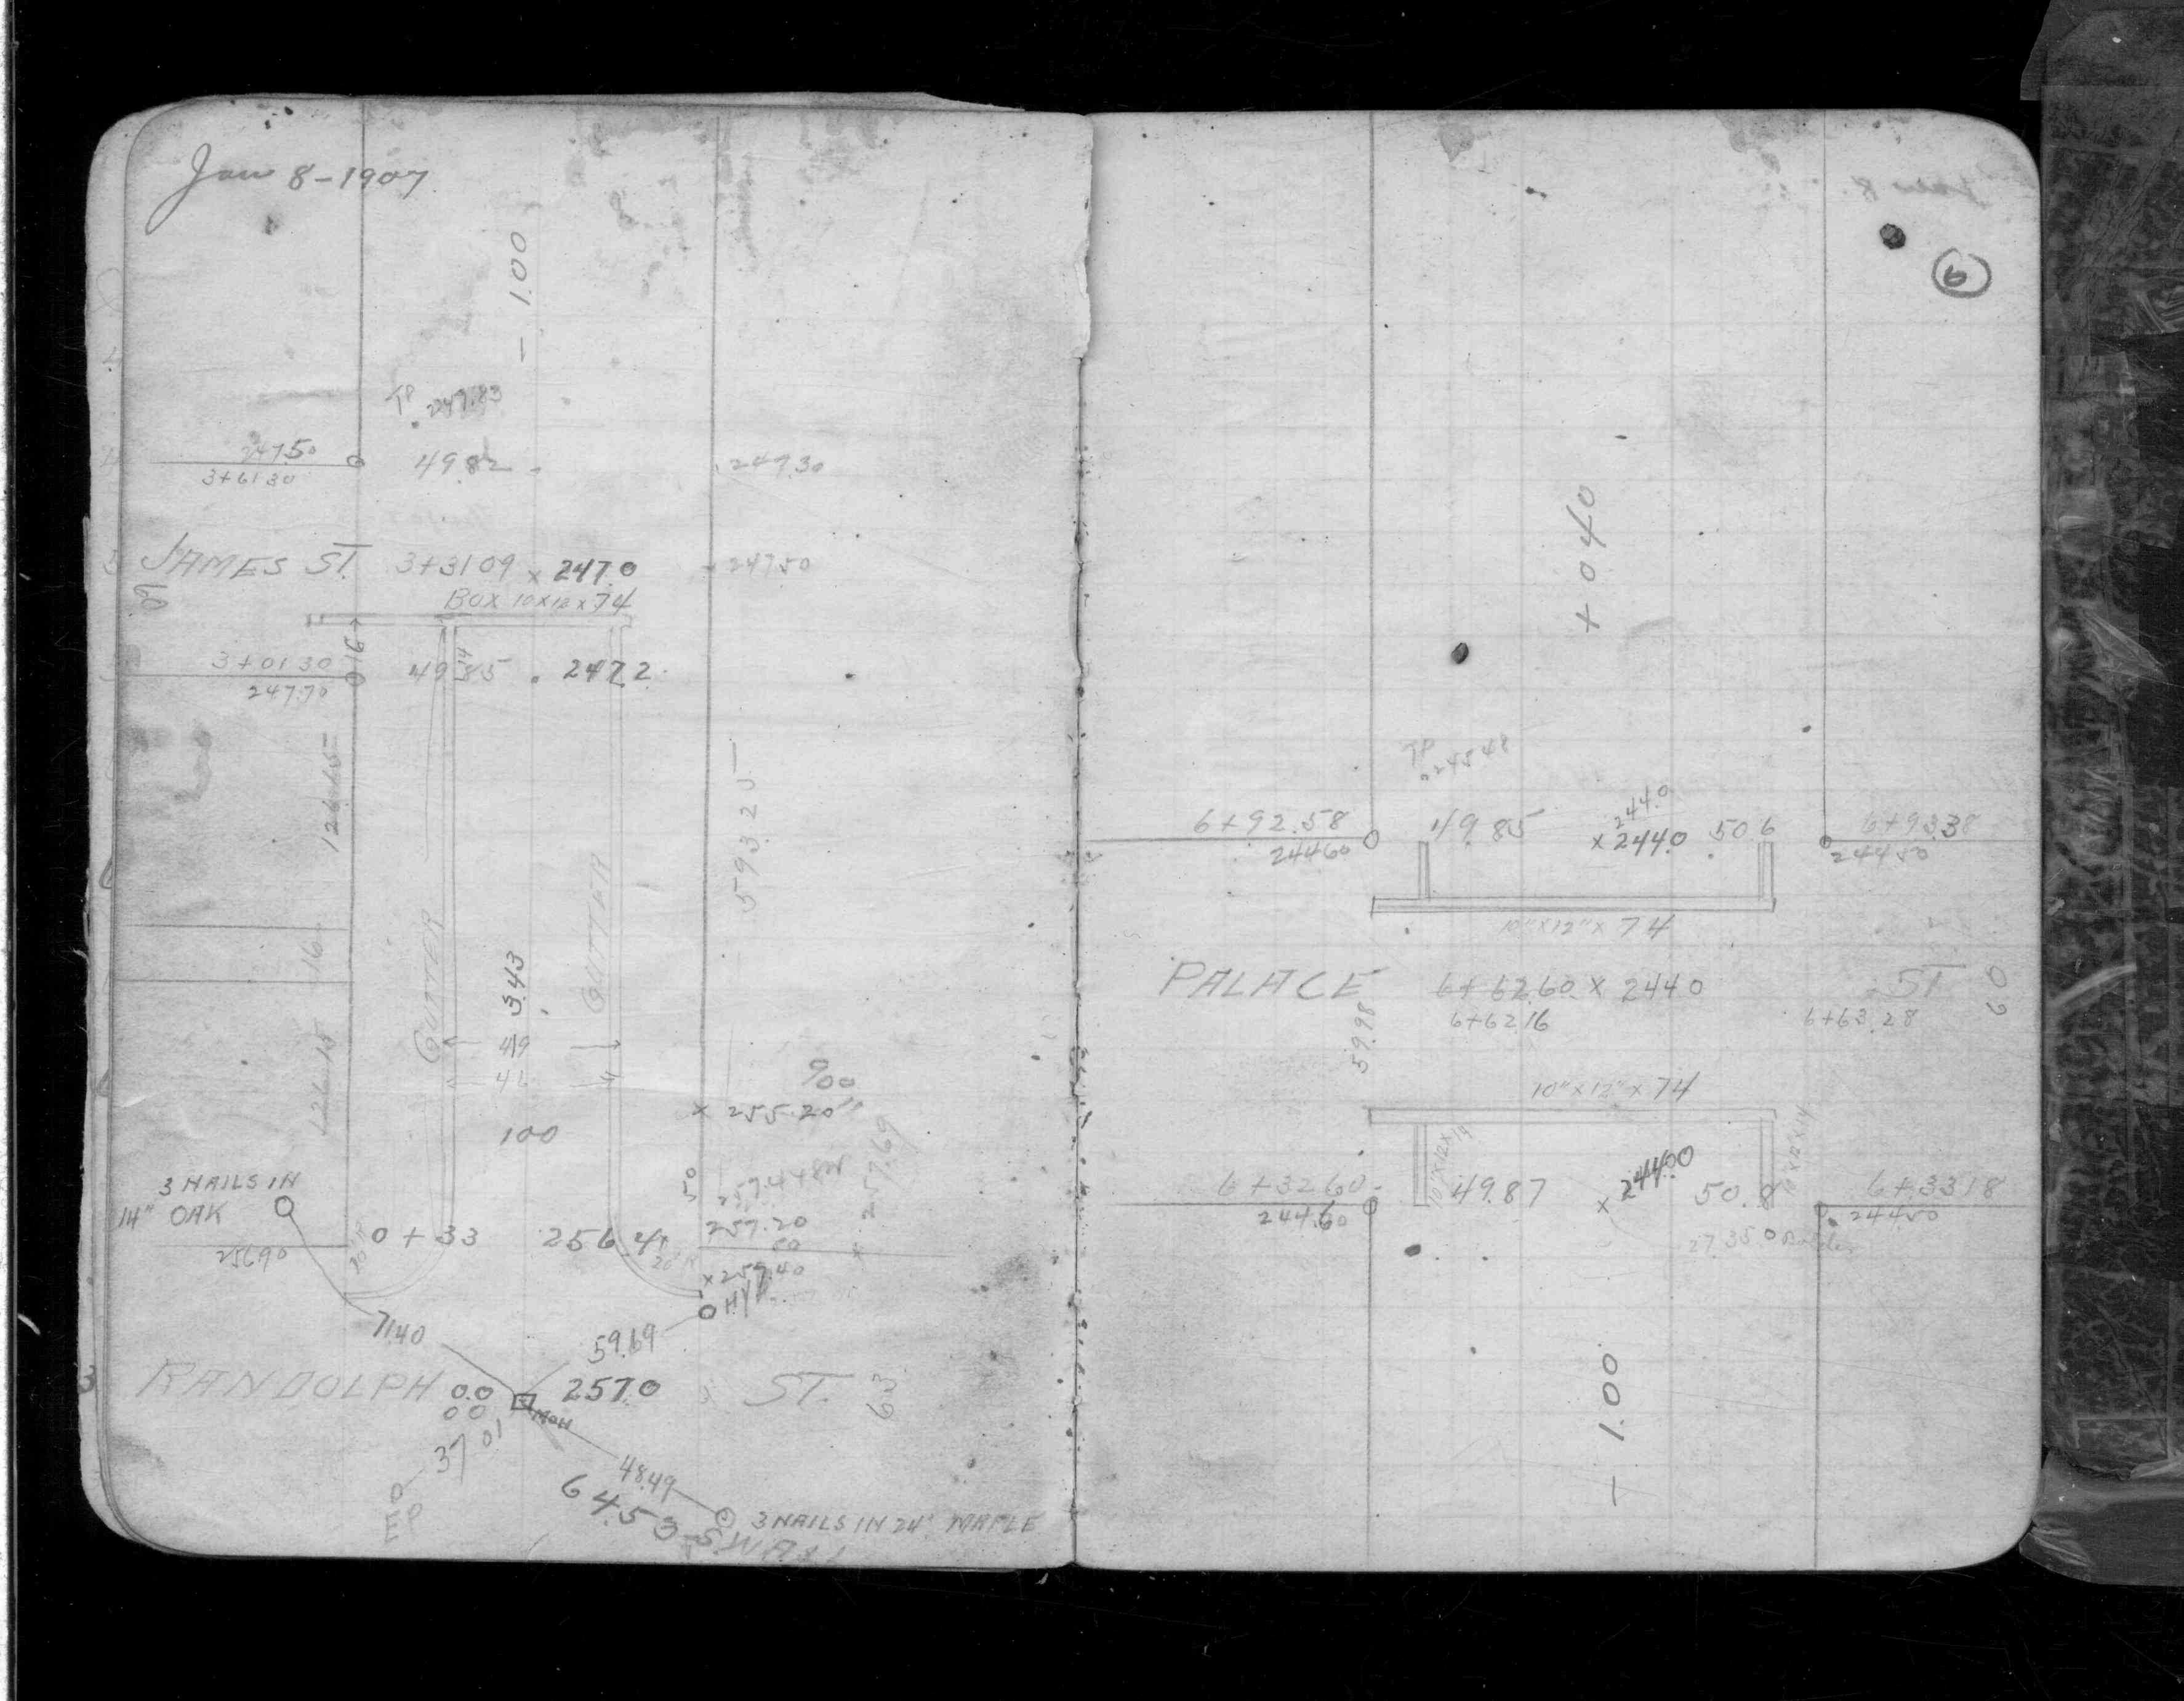 Jan 8-1907
- 1.00
TP 247.83
247.50
3+6130
49.82
249.30
JAMES ST. 3+3109 x 247.0
247.50
60
BOX 10x12x74
16
14
3+0130
247.70
49.85 . 247.2
126.15
593.25
GUTTER
GUTTER
343
16
49
126.15
900
x 255.20
100
257.69
3 NAILS IN
14" OAK
50
257.20
256.90
0+33
256.4
20' R
x 259.40
HYD.
71.40
59.69
RANDOLPH
0.0
00
257.0
ST.
63
MON
3701
48.49
64.53
3 NAILS IN 24" MAPLE
6
+ 0.40
TP
245.48
6+92.58
244.60
49.85
244.0
x 244.0
50.6
6+93.38
244.50
10"x12"x74
PALACE
6+62.60 x 244.0
ST
60
6+6216
6+63.28
59.98
10"x12"x74
10"x12x14
10x12x14
6+32.60
244.60
49.87
x 244.00
50.8
6+3318
244.50
27.35
- 1.00